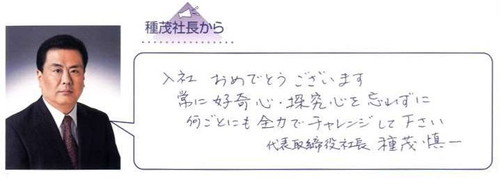 種茂社長から
入社 おめでとうございます
常に好奇心・探究心を忘れずに
何ごとにも全力でチャレンジして下さい
代表取締役社長 種茂慎一